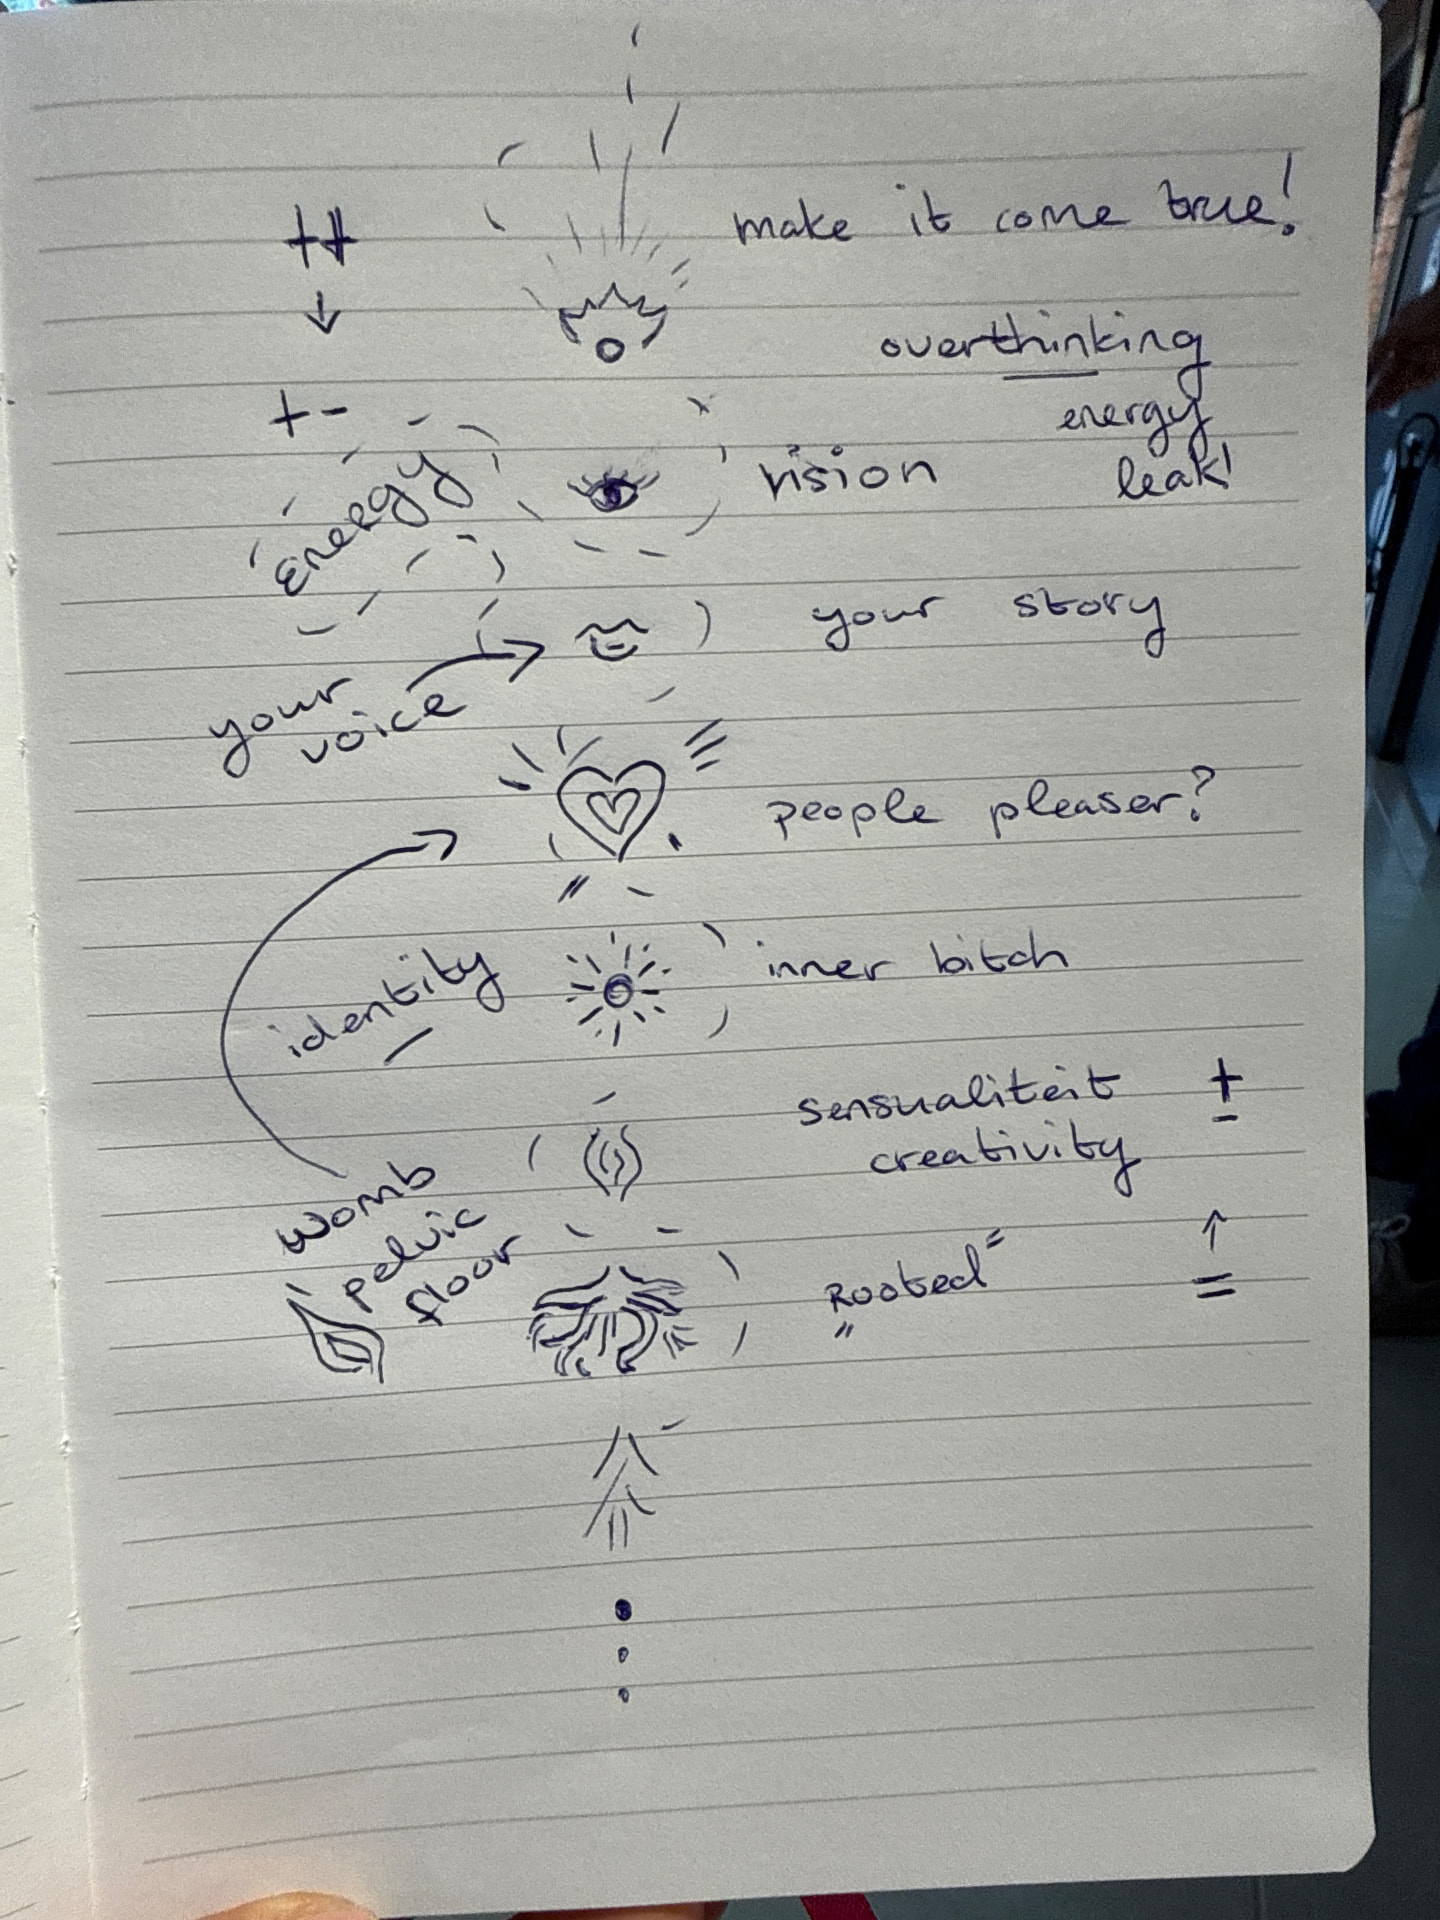 ++ make it come true!
overthinking
+- energy
Energy vision leak!
your story
your
voice
people pleaser?
identity inner bitch
sensualiteit +
creativity -
womb
pelvic
floor
Rooted =